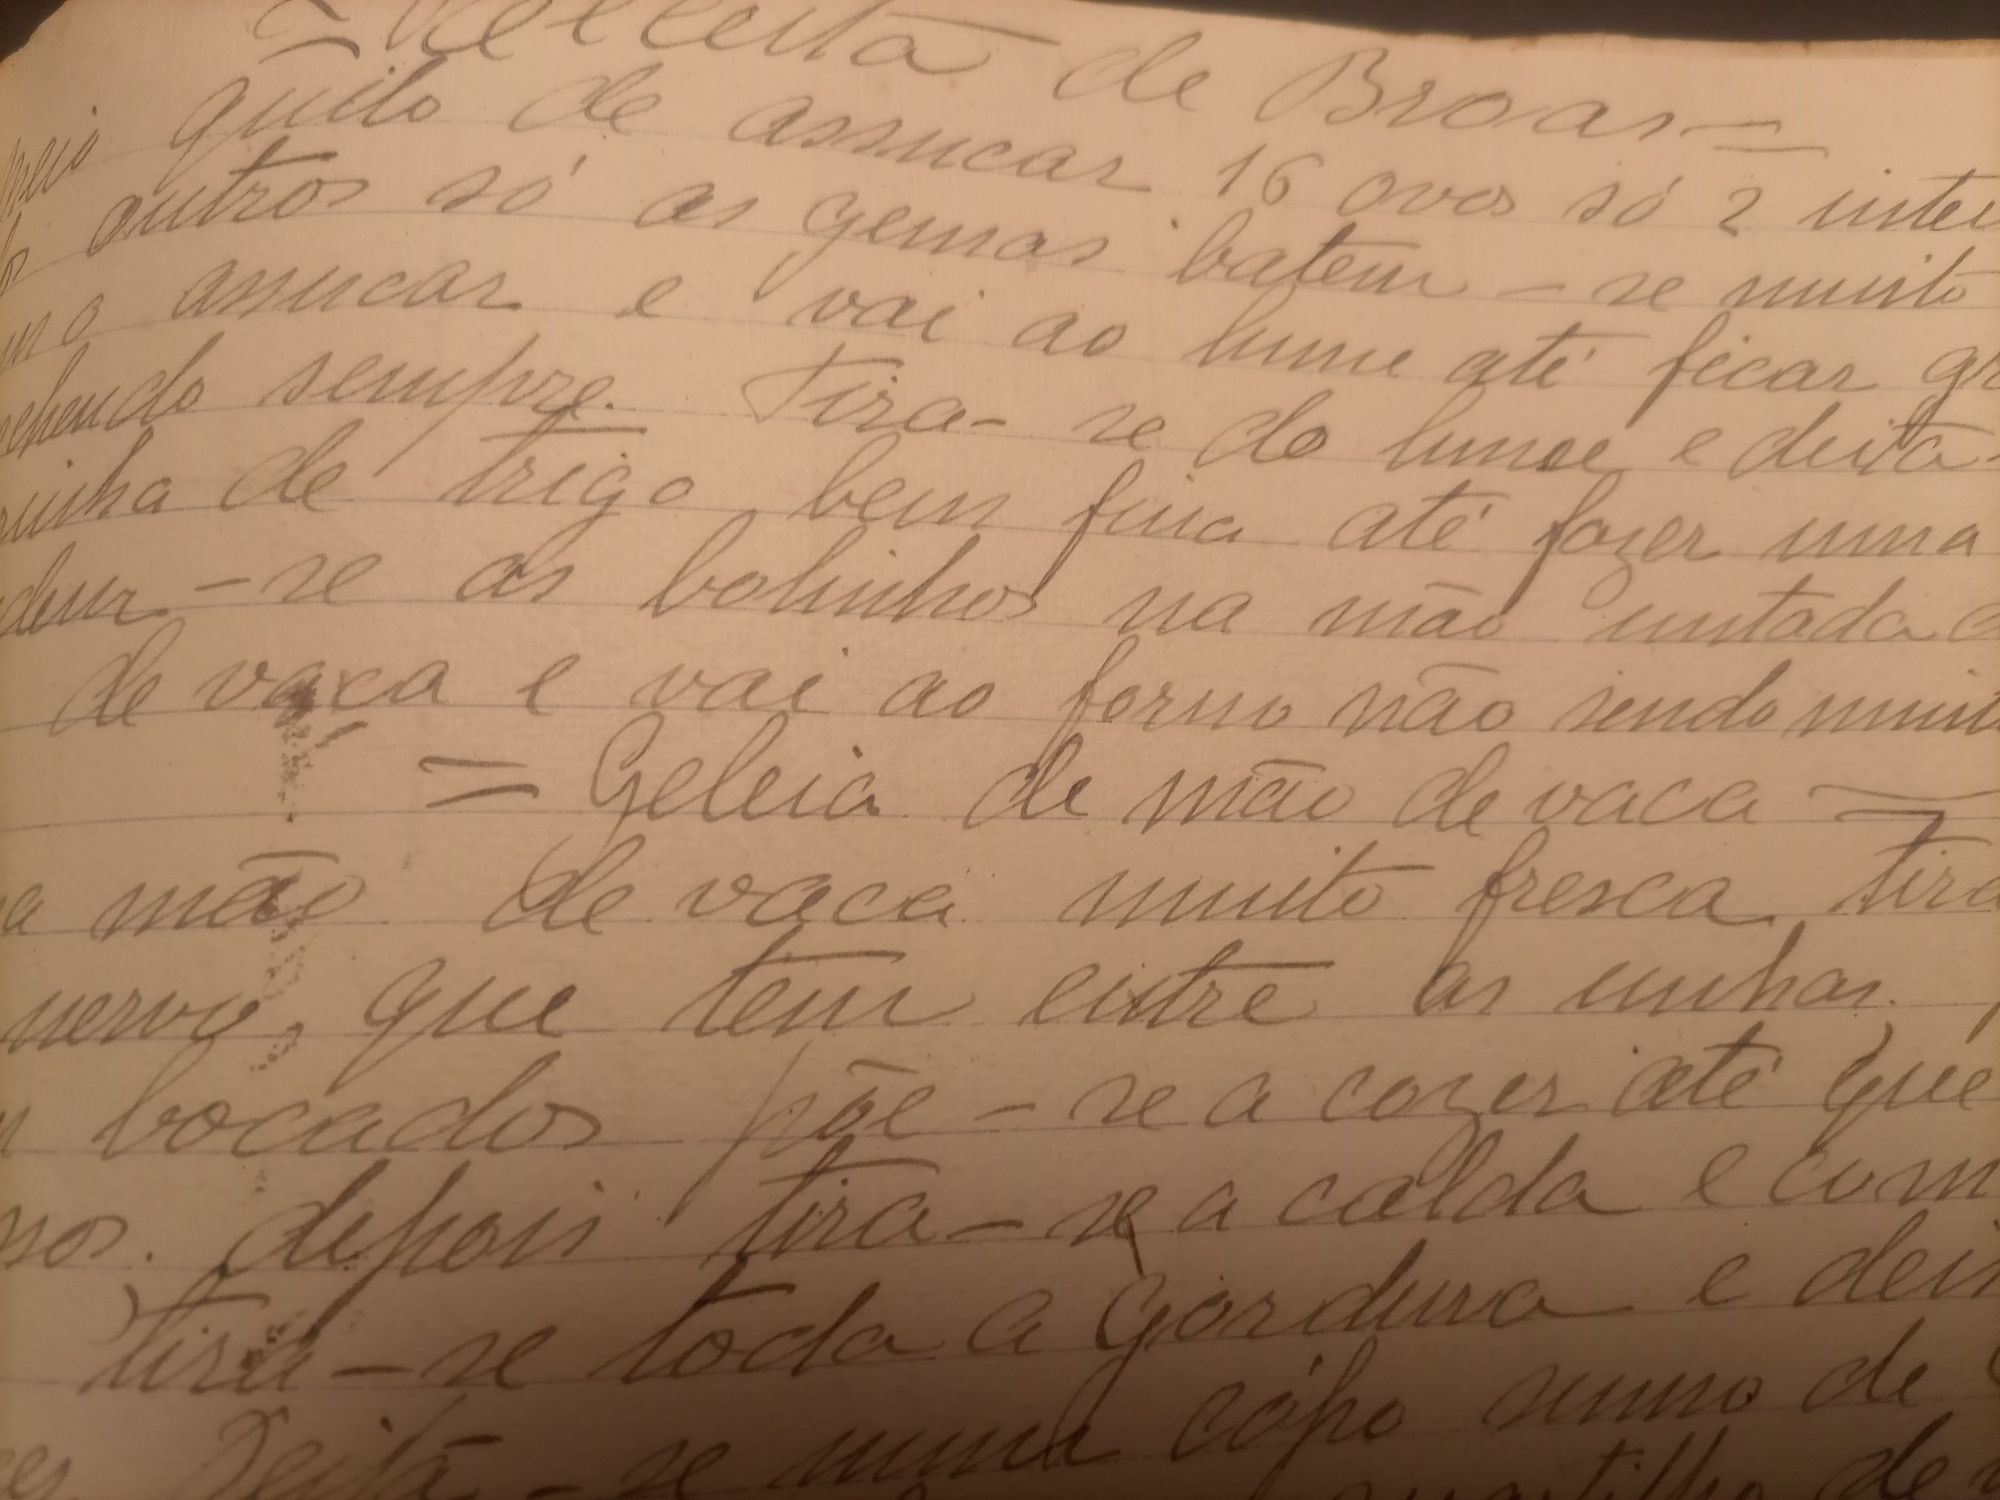 = Receita de Broas =
Meio quilo de assucar 16 ovos só 2 intei
outros só as gemas batem-se muito
assucar e vai ao lume até ficar gr
sempre. Tira-se do lume e deita-
de trigo bem fina até fazer uma
-se as bolinhos na mão untada
de vaca e vai ao forno não sendo muit
= Geleia de mão de vaca =
a mão de vaca muito fresca tira
nervo, que tem entre as unhas.
bocados põe-se a cozer até que
depois tira-se a calda e com
tira-se toda a gordura e dei
Deita-se numa cópo sumo de
quartilho de v